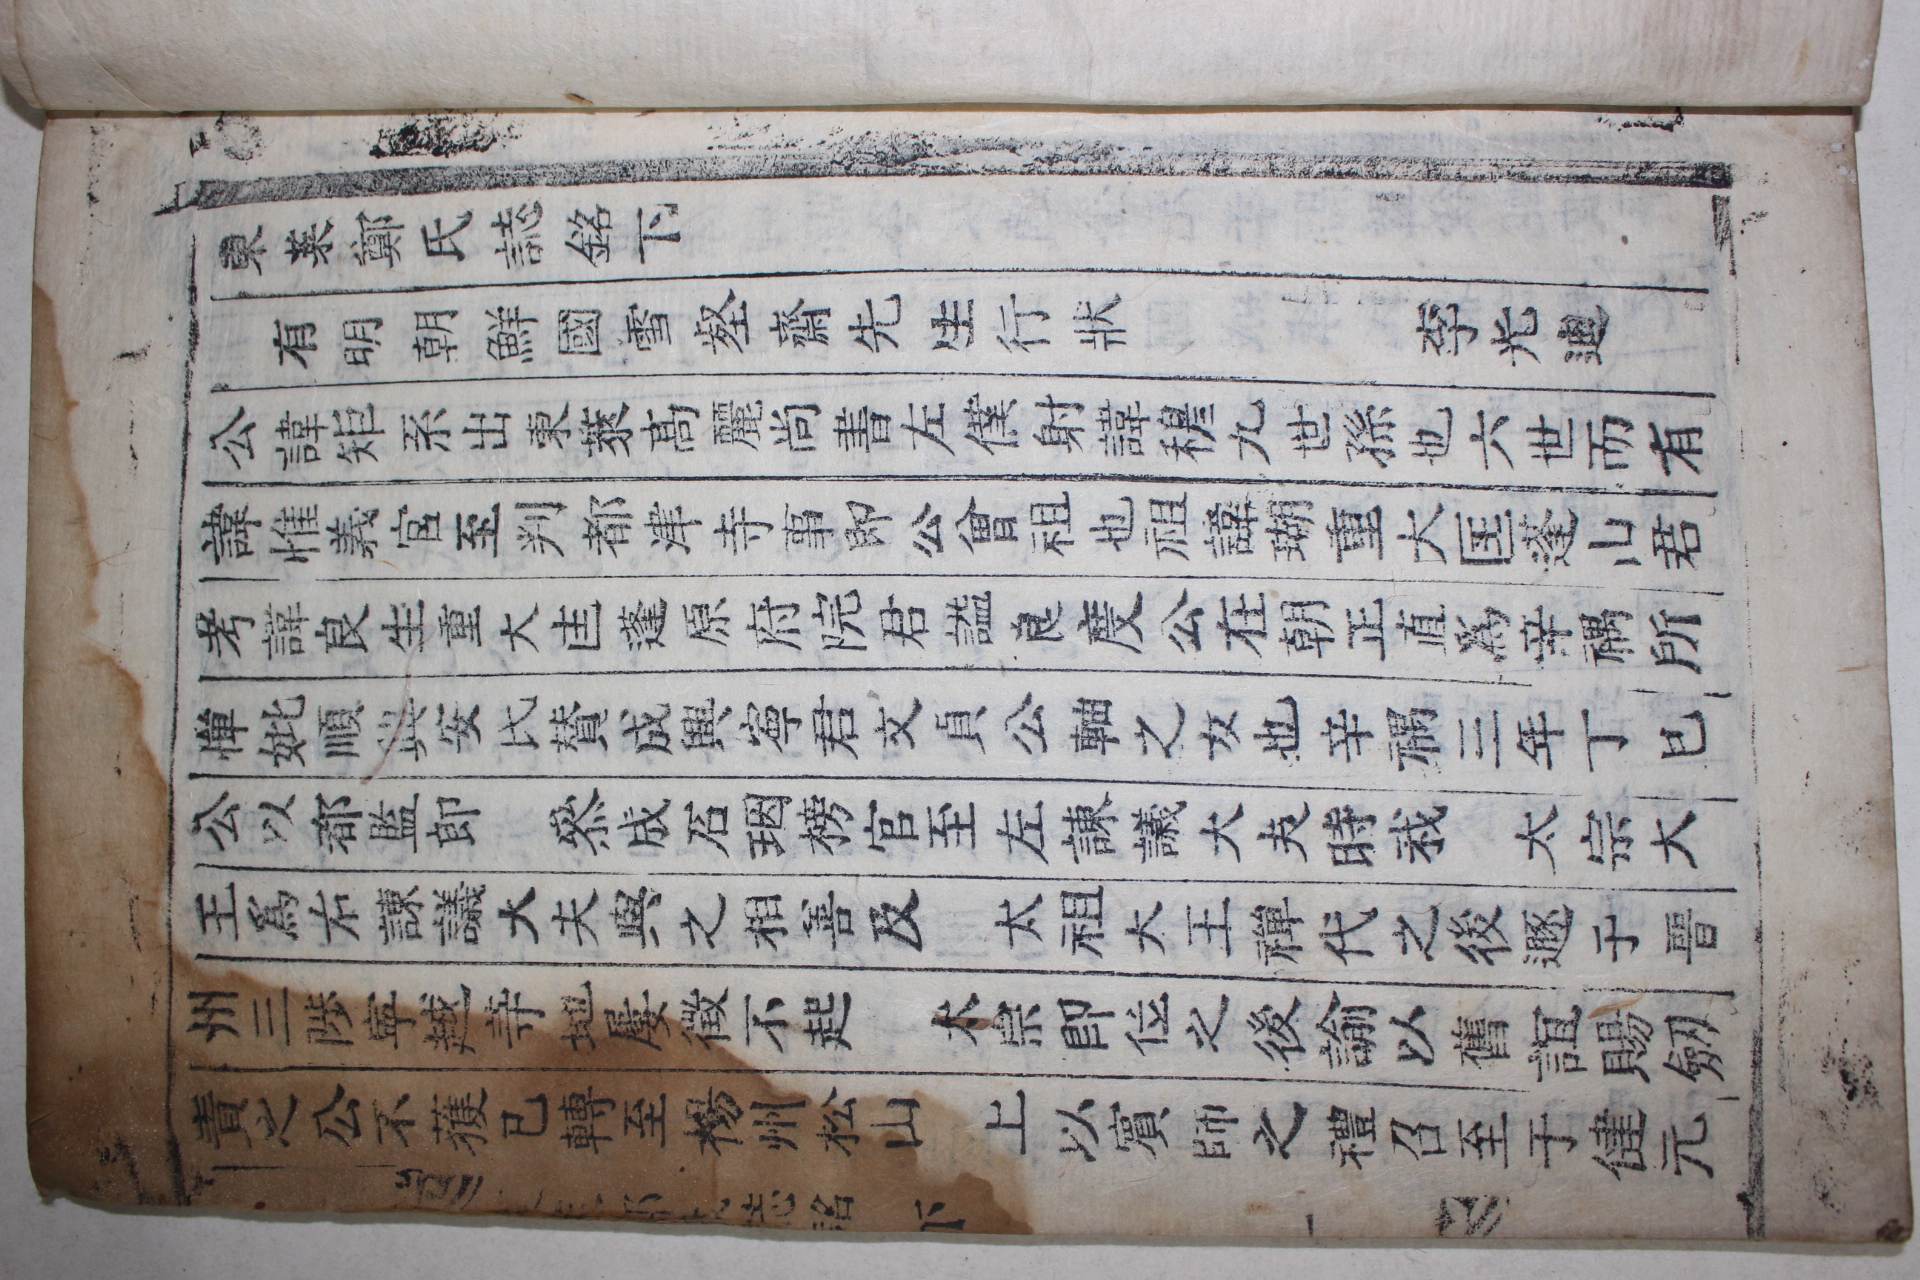 東萊鄭氏誌銘下
有明朝鮮國雪壑齋先生行狀 李光迪
公諱矩系出東萊高麗尚書左僕射諱穆九世孫也六世而有
諱惟義官至判都津寺事即公曾祖也祖諱瑚重大匡蓬山君
考諱良生重大匡蓬原府院君謚良度公在朝正直爲辛禑所
憚妣順興安氏贊成興寧君文貞公軸之女也辛禑三年丁巳
公以都監郎 叅成石珚榜官至左諫議大夫時我 太宗大
王爲右諫議大夫與之相善及 太祖大王禪代之後遯于晋
州三陟寧越等地屢徵不起 太宗即位之後諭以舊誼賜劒
責之公不獲已轉至楊州松山 上以賓師之禮召至于健元
氏誌銘 下